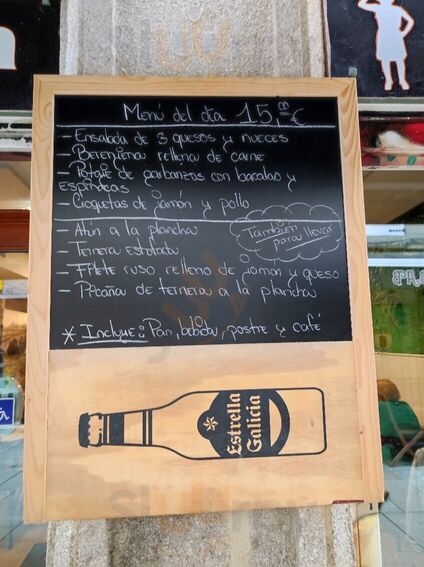 Menú del día 15,00 €
- Ensalada de 3 quesos y nueces
- Berenjena rellena de carne
- Potaje de garbanzos con bacalao y
espinacas
- Croquetas de jamón y pollo
- Atún a la plancha
- Ternera estofada
- Filete ruso relleno de jamón y queso
- Picaña de ternera a la plancha
También
para llevar
* Incluye: Pan, bebida, postre y café
Estrella
Galicia